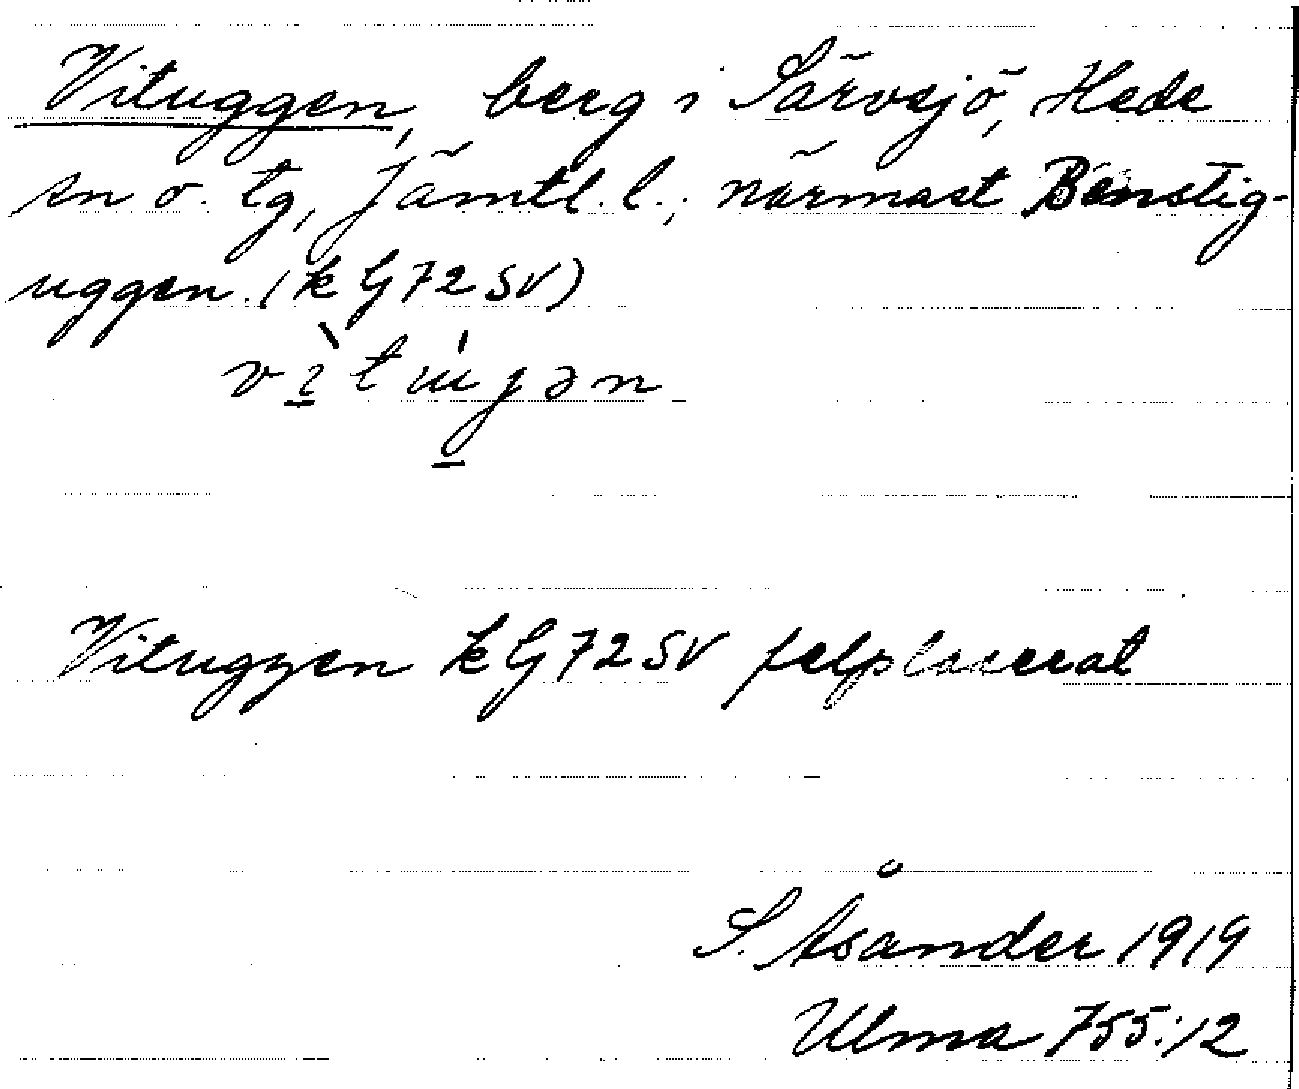 Vituggen, berg i Särvsjö, Hede
sn o. tg, Jämtl. l.; närmast Benstig-
uggen. (k G 72 SV)
Vituggen k G 72 SV felplacerat
S. Åsander 1919
Ulma 755:12